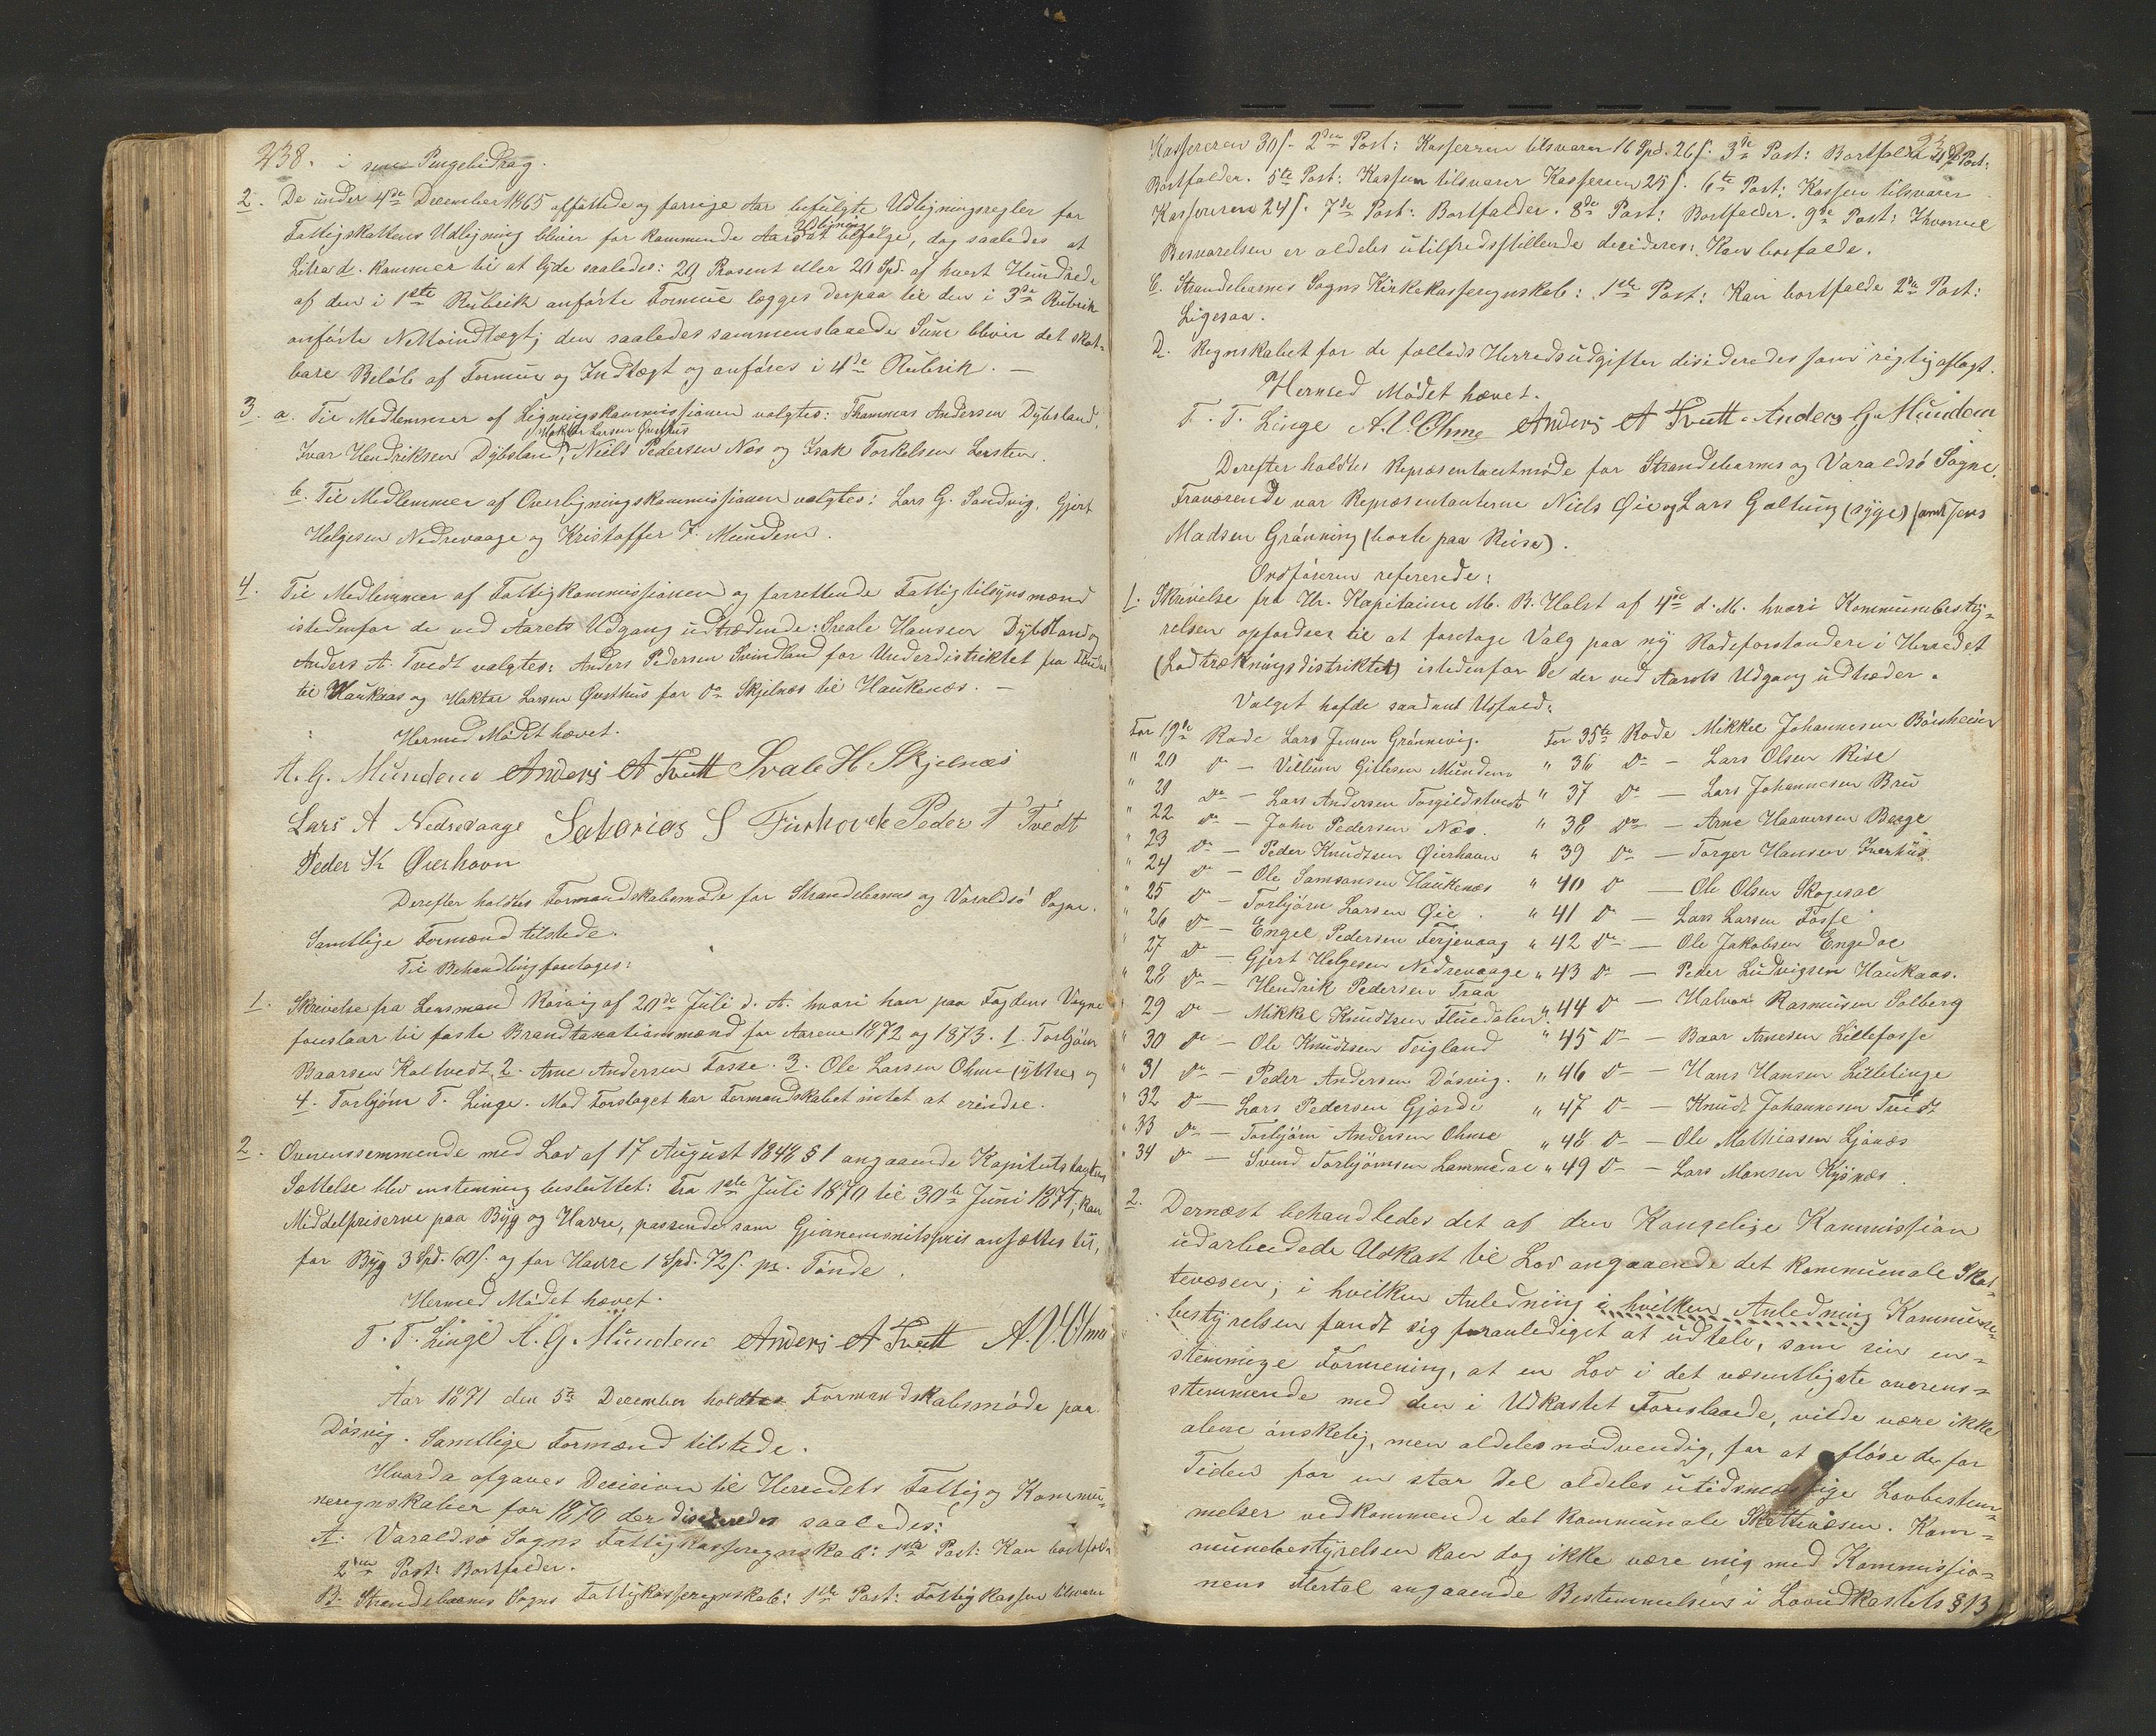 238. i Pengebidrag.
2. De under 4de December 1865 affattede og forrige Aar befulgte Udligningsregler for
Fattigskattens Udligning bliver for kommende Aars Udligning at befølge, dog saaledes at
Litra d. kommer til at lyde saaledes: 20 Prosent eller 20 Spd. af hvert Hundrede
af den i 1ste Rubrik anførte Formue lægges derpaa til den i 3de Rubrik
anførte Nettoindtægt; den saaledes sammenslaaede Sum bliver det skat-
bare Beløb af Formue og Indtægt og anføres i 4de Rubrik. —
3. a. Til Medlemmer af Ligningskommissionen valgtes: Thommas Andersen Dybsland,
Ivar Hendriksen Dybsland, Haktor Larsen Qvesthus, Niels Pedersen Nes og Isak Torkelsen Lersten.
b. Til Medlemmer af Overligningskommissionen valgtes: Lars G. Sandvig, Gjert
Helgesen Nedrevaage og Kristoffer F. Mundem.
4. Til Medlemmer af Fattigkommissionen og forrettende Fattigtilsynsmænd
istedenfor de ved Aarets Udgang udtrædende: Svale Hansen Dybsland og
Anders A. Tvedt valgtes: Anders Pedersen Svindland for Underdistriktet fra
til Haukaas og Haktor Larsen Qvesthus for do Skjelnæs til Haukenæs. —
Hermed Mødet hævet.
A. G. Mundem Anders A Tvett Svale H Skjelnæs
Lars A Nedrevaage Sakarias S Furhovde Peder T Tvedt
Peder K Øierhavn
Derefter holdtes Formandskabsmøde for Strandebarms og Varaldsø Sogne.
Samtlige Formænd tilstede.
Til Behandling foretoges:
1. Skrivelse fra Lensmand Rosvig af 20de Juli d. A. hvori han paa Fogdens Vegne
foreslaar til faste Brandtaxationsmænd for Aarene 1872 og 1873. 1. Torbjørn
Baarsen Haltvedt, 2. Arne Andersen Fosse. 3. Ole Larsen Ohme (yttre) og
4. Torbjørn T. Linge. Mod Forslaget har Formandskabet intet at erindre.
2. Overensstemmende med Lov af 17 August 1848 § 1 angaaende Kapitelstaxtens
Sættelse blev enstemmig besluttet: Fra 1ste Juli 1870 til 30te Juni 1871, kan
Middelpriserne paa Byg og Havre, passende som Gjennemsnitspris ansættes til,
for Byg 3 Spd. 60 s. og for Havre 1 Spd. 72 s. pr. Tønde.
Hermed Mødet hævet.
T. T. Linge A. G. Mundem Anders A Tvett A. V. Ohme
Aar 1871 den 5te December holdtes Formandskabsmøde paa
Døsvig. Samtlige Formænd tilstede.
Hvorda afgaves Decision til Herredets Fattig og Kommu-
neregnskaber for 1870 der disideredes saaledes:
A. Varaldsø Sogns Fattigkasseregnskab: 1ste Post: Kan bortfalde
2den Post: Bortfalder.
B. Strandebarms Sogns Fattigkasseregnskab: 1ste Post: Fattigkassen tilsvarer
Kassereren 30 s. 2den Post: Kassereren tilsvarer 16 Spd. 26 s. 3de Post: Bortfalder. 4de Post:
Bortfalder. 5te Post: Kassen tilsvarer Kassereren 25 s. 6te Post: Kassen tilsvarer
Kassereren 24 s. 7de Post: Bortfalder. 8de Post: Bortfalder. 9de Post: Ihvorvel
Besvarelsen er aldeles utilfredsstillende decideres: Kan borfalde.
C. Strandebarms Sogns Kirkekasseregnskab: 1ste Post: Kan bortfalde 2den Post:
Ligesaa.
D. Regnskabet for de fælleds Herredsudgifter disideredes som rigtig aflagt.
Hermed Mødet hævet.
T. T. Linge A. V. Ohme Anders A Tvett Anders G. Mundem
Derefter holdtes Repræsentantmøde for Strandebarms og Varaldsø Sogne.
Fraværende var Repræsentanterne Niels Øie og Lars Galtung (syge) samt Jens
Madsen Grønning (borte paa Reise).
Ordføreren refererede:
1. Skrivelse fra Hr. Kapitaine M. B. Halst af 4de d. M. hvori Kommunebesty-
relsen opfordres til at foretage Valg paa ny Rodeforstandere i Herredet
(Lodtrækningsdistriktet) istedenfor de der ved Aarets Udgang udtræder.
Valget havde saadant Udfald:
For 19de Rode Lars Jensen Grønnevig. For 35te Rode Mikkel Johannesen Børsheim
" 20 do — Villum Gitlesen Mundem " 36 do — Lars Olsen Rise
" 21 do — Lars Andersen Torgildstvedt " 37 do — Lars Johannesen Bru
" 22 do — John Pedersen Nes. " 38 do — Arne Haaversen Berge
" 23 do — Peder Knudsen Øierhavn " 39 do — Torger Hansen Inerhus
" 24 do — Ole Samsonsen Haukenæs " 40 do — Ole Olsen Skogesal
" 25 do — Torbjørn Larsen Øie. " 41 do — Lars Larsen Fosse
" 26 do — Engel Pedersen Ferjevaag " 42 do — Ole Jakobsen Engedal
" 27 do — Gjert Helgesen Nedrevaage " 43 do — Peder Ludvigsen Haukaas.
" 28 do — Hendrik Pedersen Traa " 44 do — Halvor Rasmusen Solberg
" 29 do — Mikkel Knudsen Fluedalen. " 45 do — Baar Arnesen Lillefosse
" 30 do — Ole Knudsen Teigland " 46 do — Hans Hansen Lillelinge
" 31 do — Peder Andersen Døsvig. " 47 do — Knudt Johannesen Tvedt
" 32 do — Lars Pedersen Gjærde " 48 do — Ole Mathiasen Ljønæs
" 33 do — Torbjørn Andersen Ohme " 49 do — Lars Monsen Kysnæs.
" 34 do — Svend Torbjørnsen Lammedal
2. Dernæst behandledes det af den Kongelige Kommission
udarbeidede Udkast til Lov angaaende det kommunale Skat-
tevæsen; i hvilken Anledning i hvilken Anledning Kommune-
bestyrelsen fandt sig foranlediget at udtale, som sin en-
stemmige Formening, at en Lov i det væsentligste overens-
stemmende med den i Udkastet Foreslaaede, vilde være ikke
alene ønskelig, men aldeles nødvendig, for at afløse de for
Tiden for en stor Del aldeles utidsmæssige Lovbestem-
melser vedkommende det kommunale Skattevæsen. Kom-
munebestyrelsen kan dog ikke være enig med Kommissio-
nens Flertal angaaende Bestemmelsen i Lovudkastets § 13